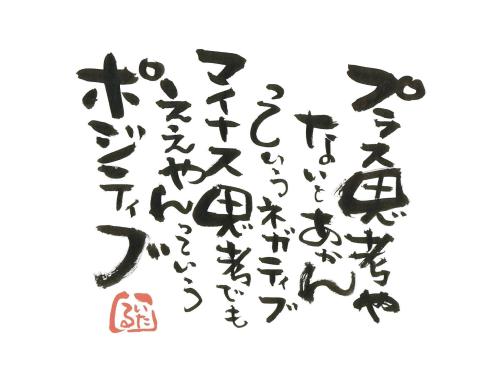 プラス思考や
ないとあかん
っていうネガティブ
マイナス思考でも
ええやんっていう
ポジティブ
いたる